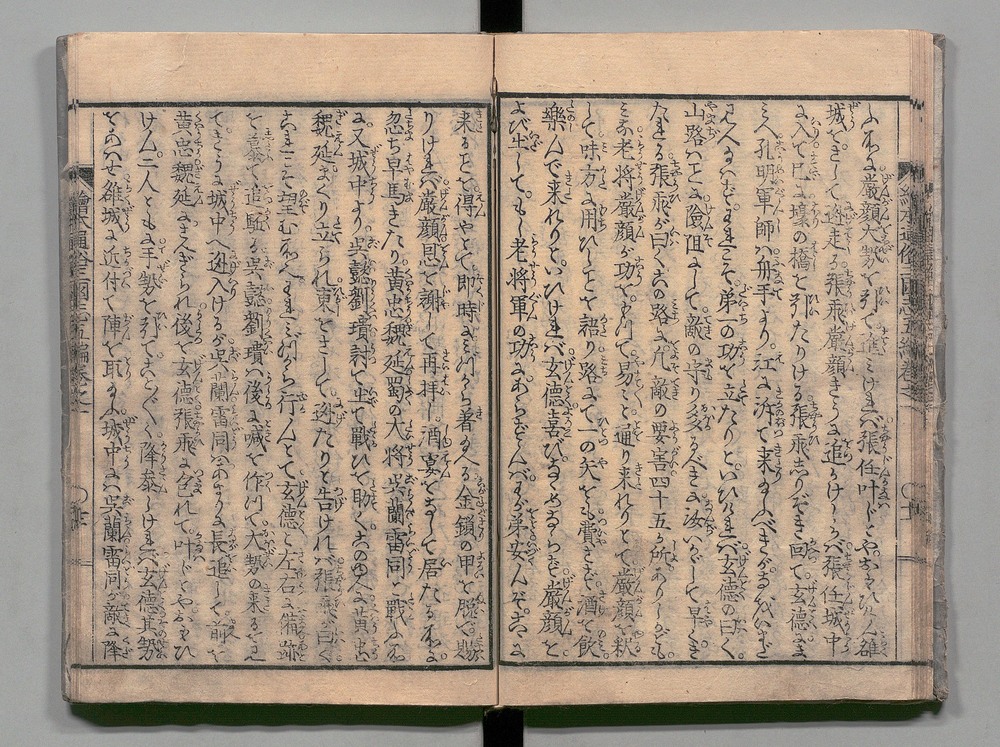 ふ本は厳顔大勢を引て進ミけれバ張任叶ハじとやおもひけん雒
城をさして迯走る張飛厳顔きうに追かけしかバ張任城中
に入て巴に壕の橋を引たりける張飛志りぞき回て玄徳にま
ミへ孔明軍師ハ舟手より江に泝て来り給ふべきがまだいまだ
見へ給ハずわれこそ第一の功を立たりといひけれバ玄徳の曰く
山路ハことに險阻にして敵の守り多かるべきに汝いかゞして早くき
たれる張飛が曰くこの路に凡敵の要害四十五ヶ所ありしかども
ミな老将厳顔が功をもつて易〻と通り来れりとて厳顔を釈
して味方に用ひしことを語り路にて一の矢をも費さず酒を飲
樂んで来れりといひけれバ玄徳喜びなゝめならず厳顔を
よび出してもし老将軍の功にあらずんバわが弟安んぞこゝに
来ることを得んやとて即時にミづから着給へる金鎖の甲を脱で賜
りけれバ厳顔恩を謝して再拝し酒宴をなして居たる所に
忽ち早馬きたり黄忠魏延蜀の大将呉蘭雷同と戰ふ所
に又城中より呉懿劉璝討て出て戰ひを助くこのゆへに黄忠
魏延まくり立られ東をさして迯たりと告けれバ張飛が曰く
これこそ望む所なれわれミづから行んとて玄徳と左右に備
を立て追駈る呉懿劉璝ハ後に喊を作つて大勢の来るを見
てきうに城中へ迯入ける呉蘭雷同ハあまりに長追して前を
黄忠魏延にさえぎられ後を玄徳張飛に包れて叶ハじとやおもひ
けん二人ともに手勢を引てことごとく降参しけれバ玄徳其勢
をあハせ雒城に近付て陣を取るに城中に呉蘭雷同が敵に降
繪本通俗三國志五編巻之一